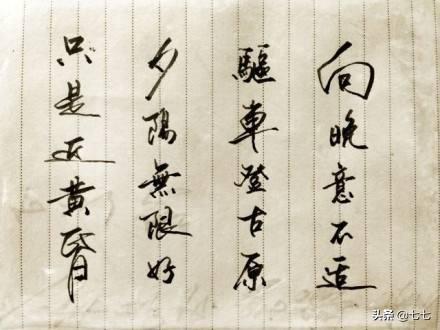 向晚意不適
驅車登古原
夕陽無限好
只是近黃昏
头条@七七